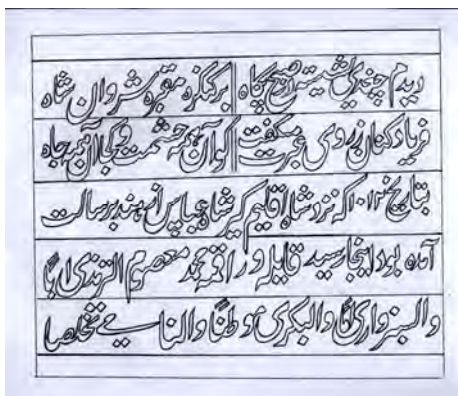 دیدم چغدی نشسته در صبح پگاه بر کنگره مقبره شروان شاه
فریاد کنان ز روی عبرت میگفت کو آن همه حشمت و کجا آن همه جاه
بتاریخ که نزد شاه اقلیم گیر شاه عباس از هند برسالت
آمده بود اینجا رسید قایله و راقمه محمد معصوم الترمذی ابا
والسبزواری اما والبکری موطنا والنامی تخلصا